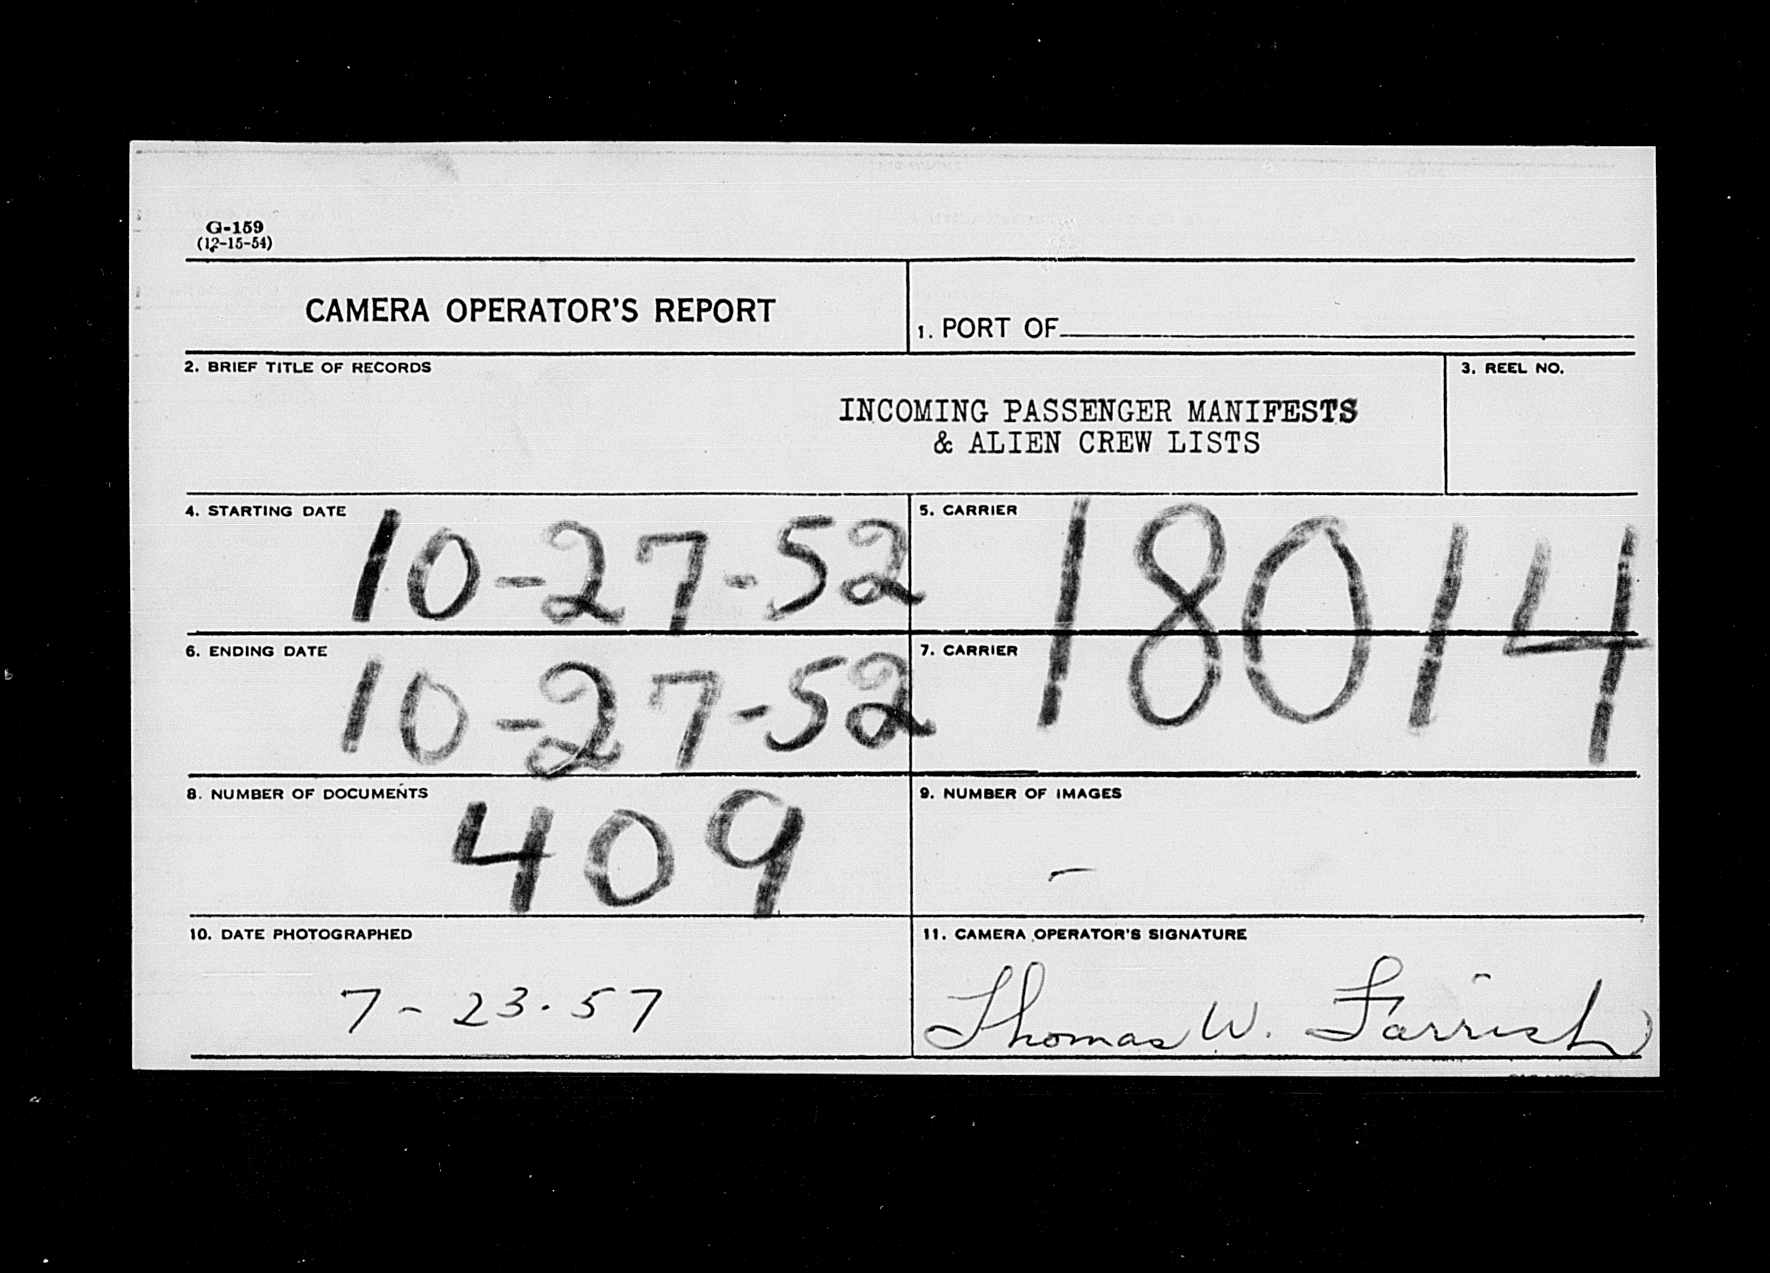 G-159
(12-15-54)
CAMERA OPERATOR'S REPORT
1. PORT OF
2. BRIEF TITLE OF RECORDS
3. REEL NO.
INCOMING PASSENGER MANIFESTS
& ALIEN CREW LISTS
4. STARTING DATE
10-27-52
5. CARRIER
18014
6. ENDING DATE
10-27-52
7. CARRIER
8. NUMBER OF DOCUMENTS
409
9. NUMBER OF IMAGES
-
10. DATE PHOTOGRAPHED
7-23-57
11. CAMERA OPERATOR'S SIGNATURE
Thomas W. Farrish